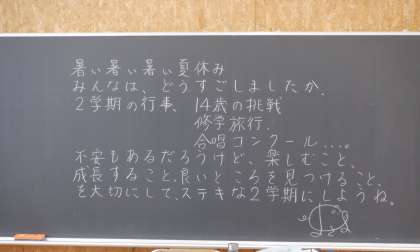 暑い暑い暑い夏休み
みんなは、どうすごしましたか。
2学期の行事、14歳の挑戦
修学旅行.
合唱コンクール....。
不安もあるだろうけど、楽しむこと、
成長すること、良いところを見つけること、
を大切にして、ステキな2学期にしようね。